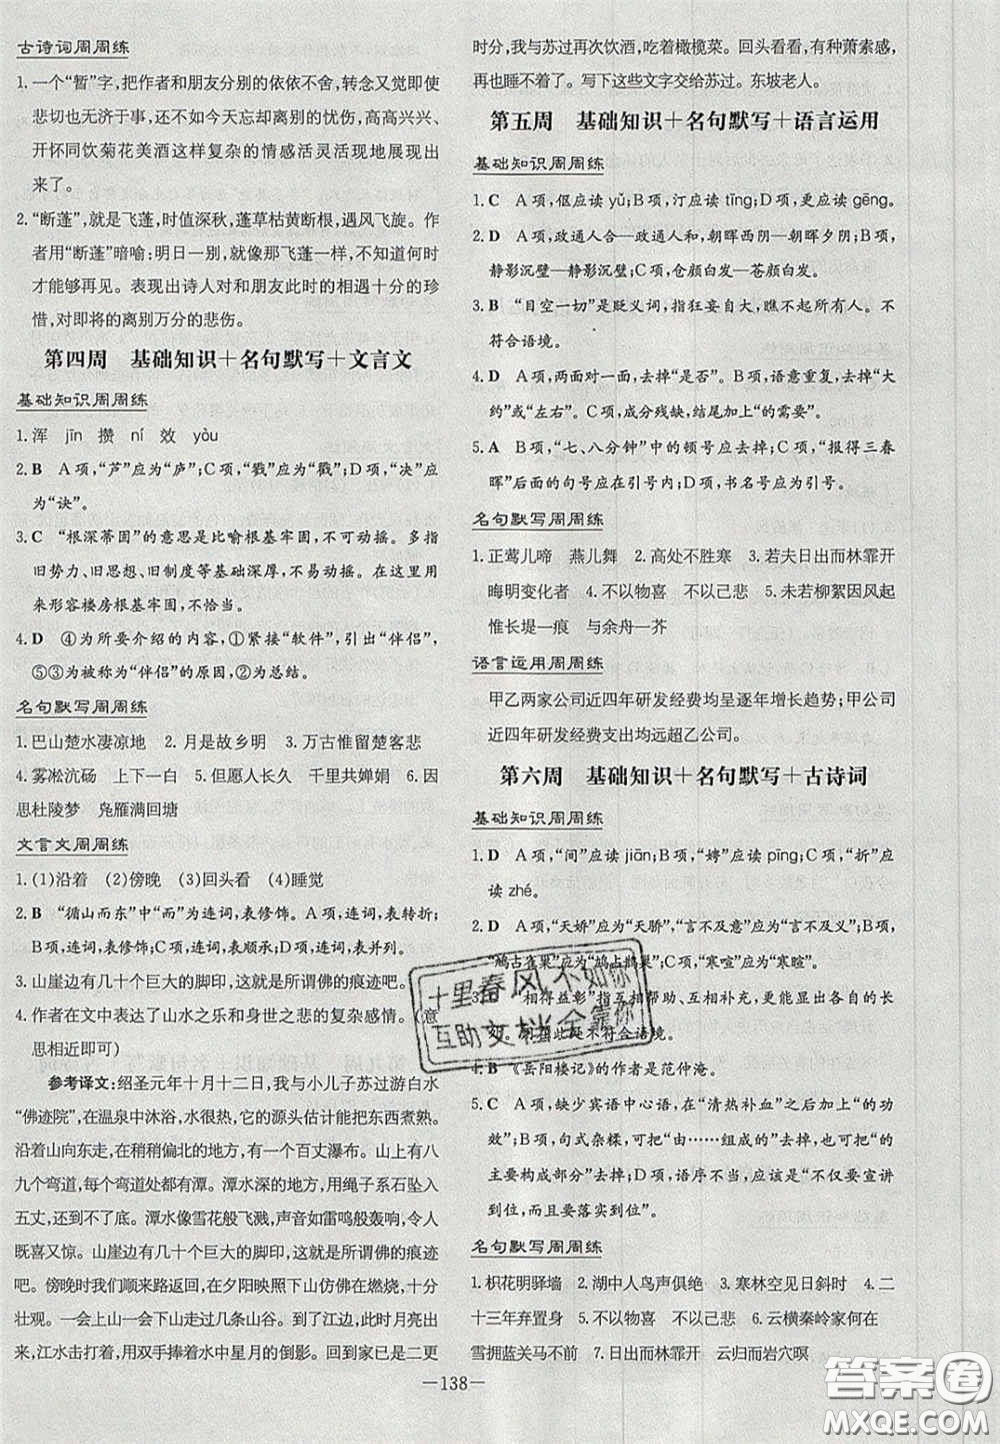 古诗词周周练
1. 一个“暂”字,把作者和朋友分别的依依不舍,转念又觉即使
悲切也无济于事,还不如今天忘却离别的忧伤,高高兴兴、
开怀同饮菊花美酒这样复杂的情感活灵活现地展现出
来了。
2. “断蓬”,就是飞蓬,时值深秋,蓬草枯黄断根,遇风飞旋。作
者用“断蓬”暗喻:明日一别,就像那飞蓬一样,不知道何时
才能够再见。表现出诗人对和朋友此时的相遇十分的珍
惜,对即将的离别万分的悲伤。
第四周 基础知识+名句默写+文言文
基础知识周周练
1. 浑 jīn 攒 ní 效 yòu
2. B A项,“芦”应为“庐”;C项,“戳”应为“戳”;D项,“决”应
为“诀”。
3. C “根深蒂固”的意思是比喻根基牢固,不可动摇。多指
旧势力、旧思想、旧制度等基础深厚,不易动摇。不能用
来形容楼房根基牢固,不正确。
4. D ④为所要介绍的内容,①紧接“软件”,引出“伴侣”,
⑤③为被称为“伴侣”的原因,②为总结。
名句默写周周练
1. 巴山楚水凄凉地 2. 月是故乡明 3. 万古惟留楚客悲
4. 雾凇沆砀 上下一白 5. 但愿人长久 千里共婵娟 6. 因
思杜陵梦 凫雁满回塘
文言文周周练
1. (1)沿着 (2)傍晚 (3)回头看 (4)睡觉
2. B “循山而东”中“而”为连词,表修饰。A项,连词,表转折;
B项,连词,表修饰;C项,连词,表顺承;D项,连词,表并列。
3. 山崖边有几十个巨大的脚印,这就是所谓佛的痕迹吧。
4. 作者在文中表达了山水之乐和身世之悲的复杂感情。(意
思相近即可)
参考译文:绍圣元年十月十二日,我与小儿子苏过游白水
“佛迹院”,在温泉中沐浴,水很热,它的源头估计能把东西煮熟。
沿着山向东走,在稍稍偏北的地方,有一个百丈瀑布。山上有八
九个弯道,每个弯道处都有潭。潭水深的地方,用绳子系石坠入
五丈,还到不了底。潭水像雪花般飞溅,声音如雷鸣般轰响,令人
既喜又惊。山崖边有几十个巨大的脚印,这就是所谓佛的痕迹
吧。傍晚时我们顺来路返回,在夕阳映照下山仿佛在燃烧,十分
壮观。一会上山一会下山俯看山谷。到了江边,此时月亮出
来,江水击打着,用双手捧着水中星月的倒影。回到家已是二更
时分,我与苏过再次饮酒,吃着橄榄菜。回头看看,有种萧索感,
再也睡不着了。写下这些文字交给苏过。东坡老人。
第五周 基础知识+名句默写+语言运用
基础知识周周练
1. C A项,伛应读 yǔ;B项,汀应读 tīng;D项,更应读 gēng。
2. D A项,政通人合—政通人和,朝晖西阴—朝晖夕阴;B项,
静影沉壁—静影沉璧;C项,仓颜白发—苍颜白发。
3. B “目空一切”是贬义词,指狂妄自大,瞧不起所有人。不
符合语境。
4. D A项,两面对一面,去掉“是否”。B项,语意重复,去掉“大
约”或“左右”。C项,成分残缺,结尾加上“的需要”。
5. A B项,“七、八分钟”中的顿号应去掉;C项,“报得三春
晖”后面的句号应在引号内;D项,引号内应为逗号。
名句默写周周练
1. 正莺儿啼 燕儿舞 2. 高处不胜寒 3. 若夫日出而林霏开
晦明变化者 4. 不以物喜 不以己悲 5. 未若柳絮因风起
惟长堤一痕 与余舟一芥
语言运用周周练
甲乙两家公司近四年研发经费均呈逐年增长趋势;甲公司
近四年研发经费支出均远超乙公司。
第六周 基础知识+名句默写+古诗词
基础知识周周练
1. D A项,“间”应读 jiān;B项,“娉”应读 pīng;C项,“折”应
读 zhé。
2. D A项,“天娇”应为“天骄”,“言不及意”应为“言不及义”;B项,
“鸠古雀巢”应为“鸠占鹊巢”;C项,“寒喧”应为“寒暄”。
3. D “相得益彰”指互相帮助、互相补充,更能显出长
处。用在此处不符合语境。
4. B 《岳阳楼记》的作者是范仲淹。
5. C A项,缺少宾语中心语,在“清热补血”之后加上“的功
效”;B项,句式杂糅,可把“由……组成的”去掉,可把“的
主要构成部分”去掉;D项,语序不当,应该是“不仅要宣讲
到位,而且要落实到位”。
名句默写周周练
1. 枳花明驿墙 2. 湖中人鸟声俱绝 3. 寒林空见日斜时 4. 二
十三年弃置身 5. 不以物喜 不以己悲 6. 云横秦岭家何在
雪拥蓝关马不前 7. 日出而林霏开 云归而岩穴暝
十里春风不如你
互助文档全靠你
—138—
答案圈
MXQE.COM